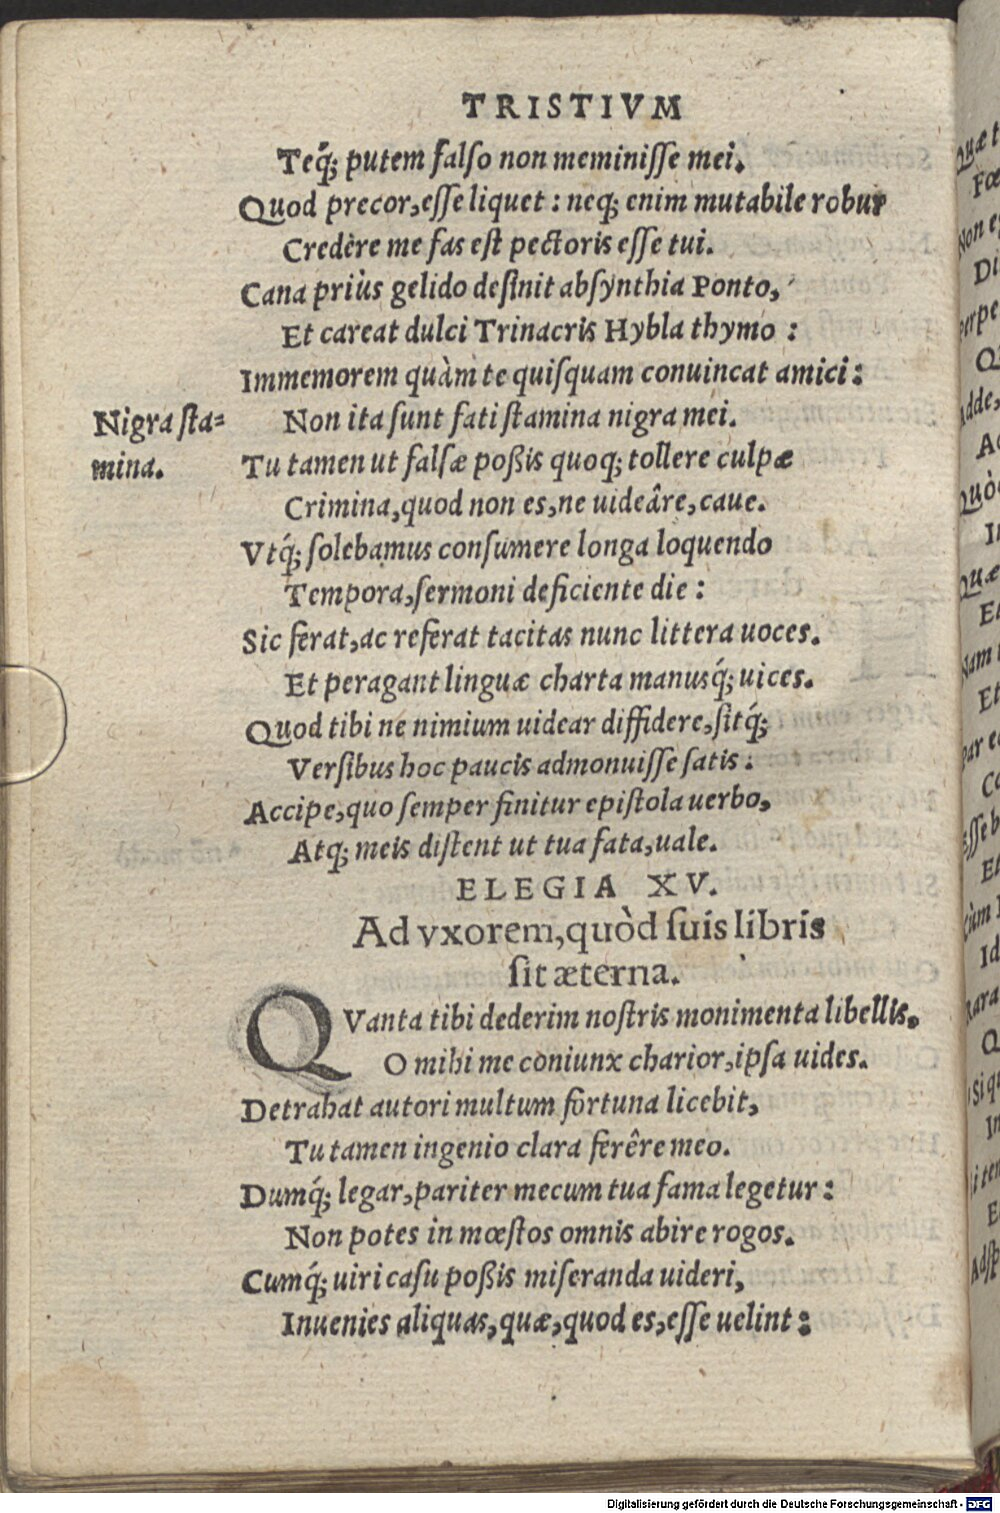 TRISTIVM
Teq́; putem falso non meminisse mei.
Quod precor, esse liquet: neq; enim mutabile robur
Credère me fas est pectoris esse tui.
Cana priùs gelido desinit absynthia Ponto,
Et careat dulci Trinacris Hybla thymo:
Immemorem quàm te quisquam conuincat amici:
Nigra sta=
mina.
Non ita sunt fati stamina nigra mei.
Tu tamen ut falsæ poßis quoq; tollere culpæ
Crimina, quod non es, ne uideâre, caue.
Vtq́; solebamus consumere longa loquendo
Tempora, sermoni deficiente die:
Sic ferat, ac referat tacitas nunc littera uoces.
Et peragant linguæ charta manusq́; uices.
Quod tibi ne nimium uidear diffidere, sitq́;
Versibus hoc paucis admonuisse satis:
Accipe, quo semper finitur epistola uerbo,
Atq; meis distent ut tua fata, uale.
ELEGIA XV.
Ad vxorem, quòd suis libris
sit æterna.
QVanta tibi dederim nostris monimenta libellis,
O mihi me coniunx charior, ipsa uides.
Detrahat autori multum fortuna licebit,
Tu tamen ingenio clara ferêre meo.
Dumq́; legar, pariter mecum tua fama legetur:
Non potes in mœstos omnis abire rogos.
Cumq́; uiri casu poßis miseranda uideri,
Inuenies aliquas, quæ, quod es, esse uelint:
Digitalisierung gefördert durch die Deutsche Forschungsgemeinschaft - DFG